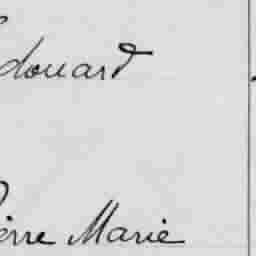 Edouard
Pierre Marie